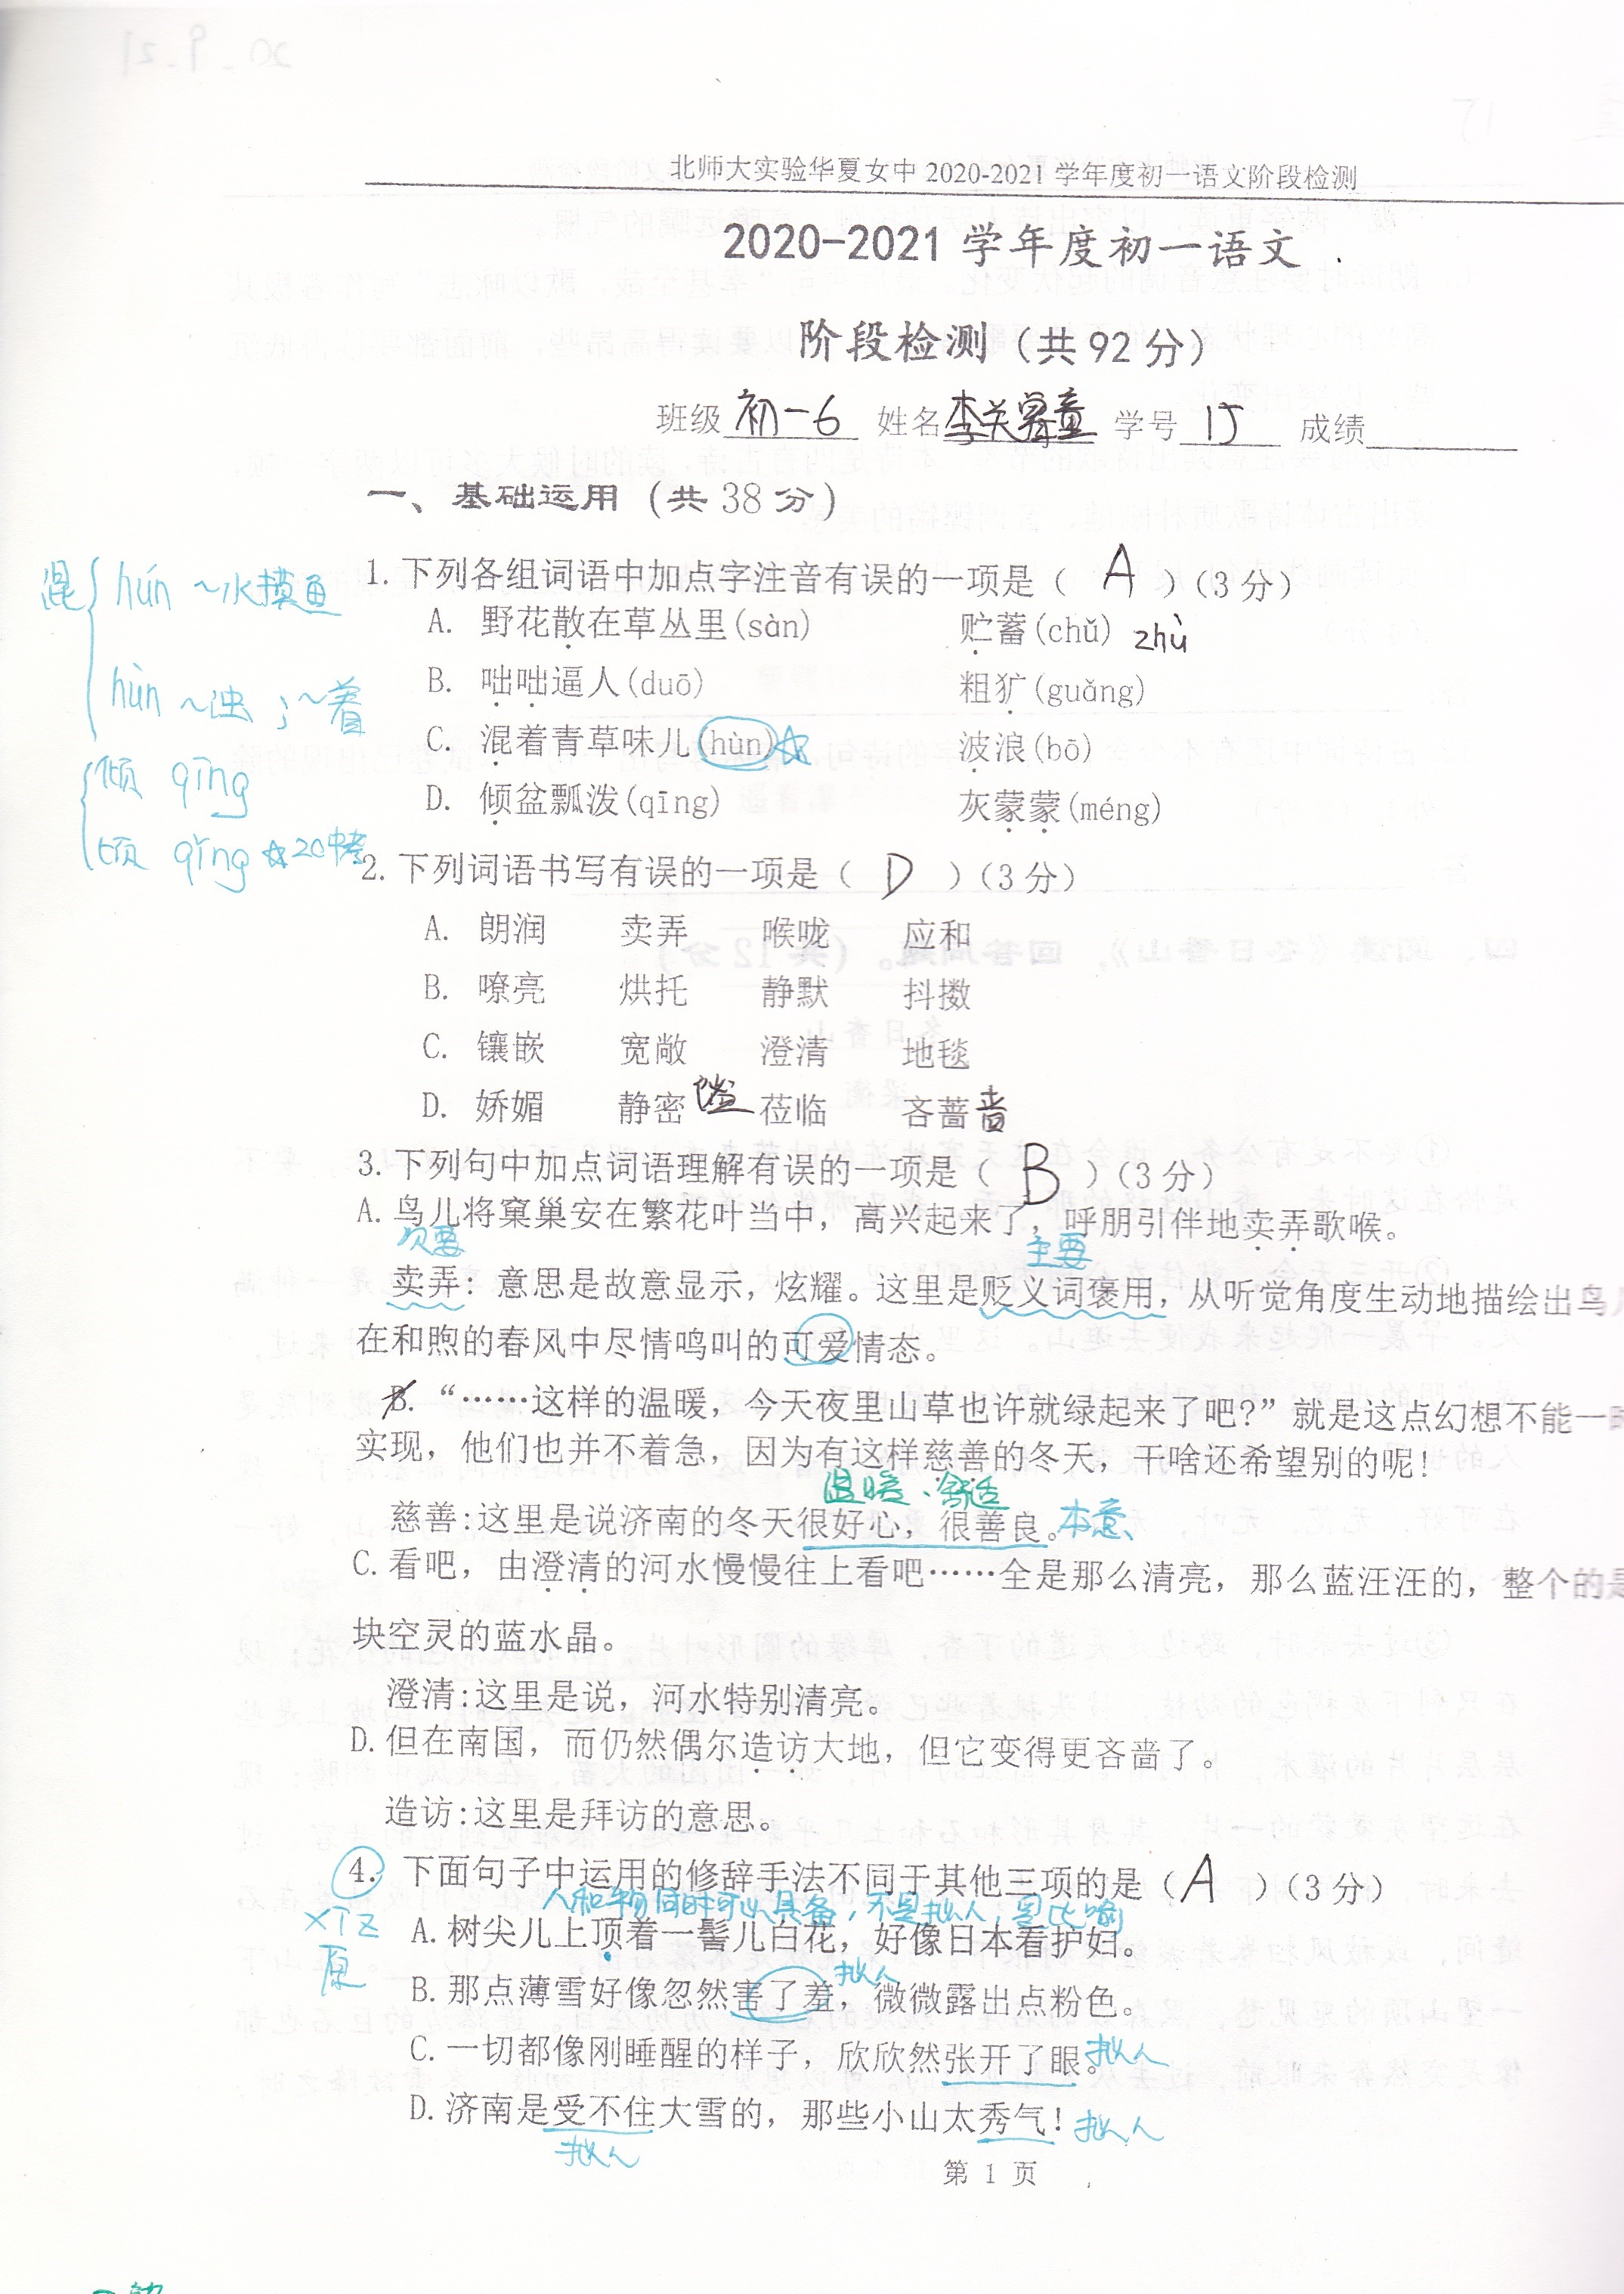 北师大实验华夏女中 2020-2021 学年度初一语文阶段检测
2020-2021 学年度初一语文
阶段检测（共 92 分）
班级 初一6 姓名 李关睿童 学号 15 成绩
一、基础运用（共 38 分）
1. 下列各组词语中加点字注音有误的一项是（ A ）（3 分）
混 hún ~水摸鱼
A. 野花散在草丛里(sàn) 贮蓄(chǔ) zhù
B. 咄咄逼人(duō) 粗犷(guǎng)
hùn ~浊；~着
C. 混着青草味儿(hùn) 波浪(bō)
倾 qīng
D. 倾盆瓢泼(qīng) 灰蒙蒙(méng)
顷 qǐng ☆20中考
2. 下列词语书写有误的一项是（ D ）（3 分）
A. 朗润 卖弄 喉咙 应和
B. 嘹亮 烘托 静默 抖擞
C. 镶嵌 宽敞 澄清 地毯
D. 娇媚 静密 谧 莅临 吝蔷 啬
3. 下列句中加点词语理解有误的一项是（ B ）（3 分）
A. 鸟儿将窠巢安在繁花叶当中，高兴起来了，呼朋引伴地卖弄歌喉。
次要 主要
卖弄：意思是故意显示，炫耀。这里是贬义词褒用，从听觉角度生动地描绘出鸟
在和煦的春风中尽情鸣叫的可爱情态。
B. “……这样的温暖，今天夜里山草也许就绿起来了吧?”就是这点幻想不能一时
实现，他们也并不着急，因为有这样慈善的冬天，干啥还希望别的呢！
温暖、舒适
慈善:这里是说济南的冬天很好心，很善良。本意
C. 看吧，由澄清的河水慢慢往上看吧……全是那么清亮，那么蓝汪汪的，整个的是
块空灵的蓝水晶。
澄清:这里是说，河水特别清亮。
D. 但在南国，而仍然偶尔造访大地，但它变得更吝啬了。
造访:这里是拜访的意思。
4. 下面句子中运用的修辞手法不同于其他三项的是（ A ）（3 分）
人和物同时可以具备，不是拟人，是比喻
XTZ
A. 树尖儿上顶着一髻儿白花，好像日本看护妇。
原
拟人
B. 那点薄雪好像忽然害了羞，微微露出点粉色。
C. 一切都像刚睡醒的样子，欣欣然张开了眼。拟人
D. 济南是受不住大雪的，那些小山太秀气！拟人
拟人
第 1 页